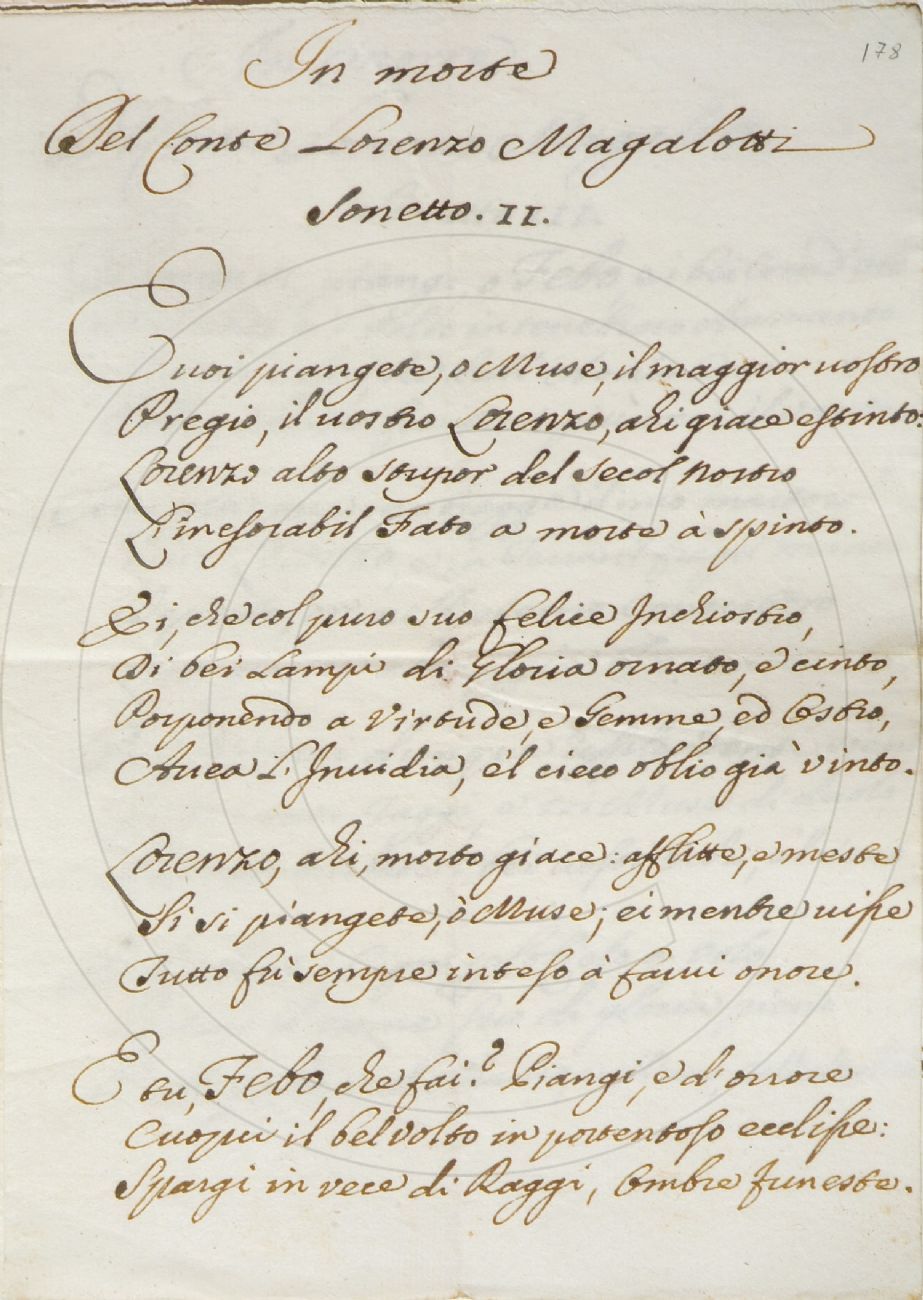 178
In morte
Del Conte Lorenzo Magalotti
Sonetto. II.
E uoi piangete, ò Muse, il maggior uostro
Pregio, il uostro Lorenzo, ahi giace estinto:
Lorenzo alto stupor del secol nostro
L'inesorabil Fato a morte à spinto.
Ei, che col puro suo felice Inchiostro,
Di bei Lampi di Gloria ornato, e cinto,
Posponendo a Virtude, e Gemme, ed Ostro,
Auea L'Inuidia, e'l cieco oblio già vinto.
Lorenzo, ahi, morto giace: afflitte, e meste
Si si piangete, ò Muse; ei mentre uisse
Tutto fù sempre inteso à farui onore.
E tu, Febo, che fai? Piangi, e d'orrore
Cuopri il bel volto in portentoso ecclisse:
Spargi in vece di Raggi, Ombre funeste.